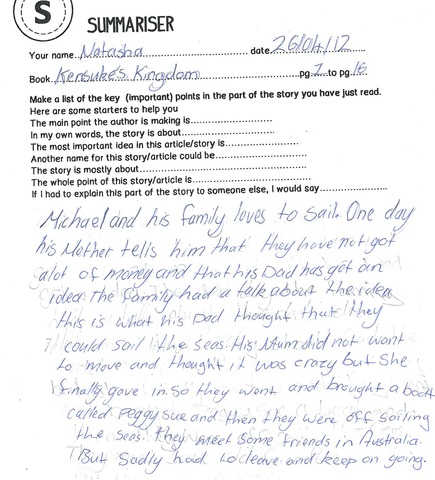 S
SUMMARISER
Your name Natasha date 26/04/12
Book Kensuke's Kingdom pg 7 to pg 16
Make a list of the key (important) points in the part of the story you have just read.
Here are some starters to help you
The main point the author is making is..............................
In my own words, the story is about..............................
The most important idea in this article/story is..............................
Another name for this story/article could be..............................
The story is mostly about..............................
The whole point of this story/article is..............................
If I had to explain this part of the story to someone else, I would say..............................
Michael and his family loves to sail. One day
his Mother tells him that they have not got
alot of money and that his Dad has got an
idea. The family had a talk about the idea
this is what his Dad thought that they
could sail the seas. His Mum did not want
to move and thought it was crazy but She
finally gave in. So they went and brought a boat
called Peggy Sue and then they were off sailing
the seas. they meet some friends in Australia.
But Sadly had to leave and keep on going.